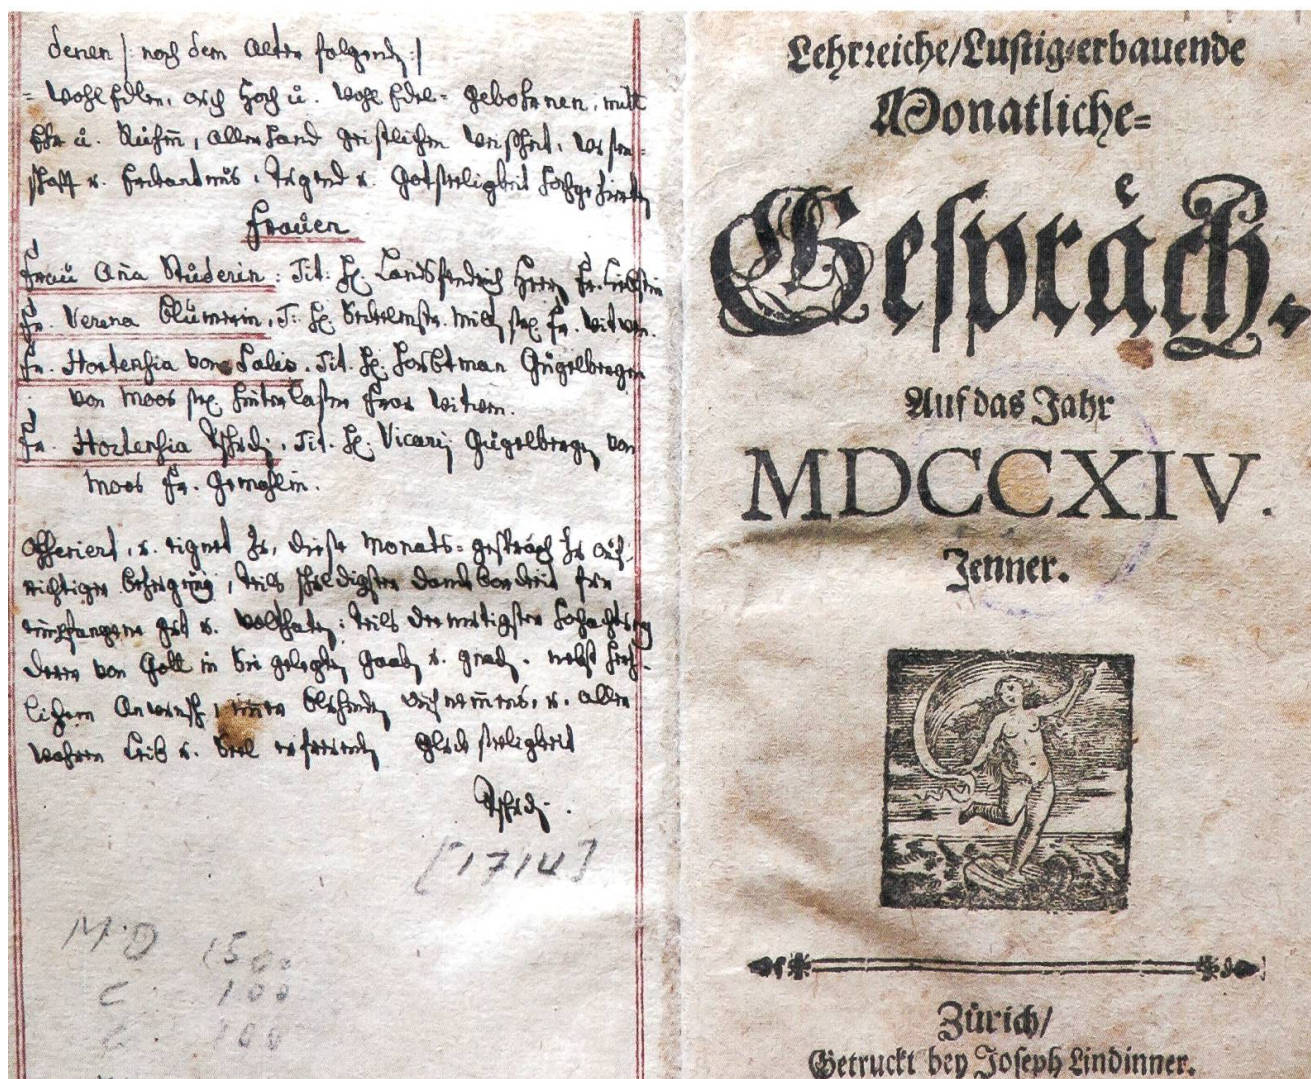 denen /: nach dem Alter folgenden :/
Wohl Edlen, auch Hoch u. Wohl Edel-gebohrnen, mit
Ehr u. Ruhm, allerhand geistlichen Weissheit, Wissen-
schafft u. Erkantnus, Tugend u. Gottseligkeit hochgezierten
Frauen
Frau Aña Studerin. Tit. Hr. Landsfendrich Herrn
Fr. Verena Blumerin. T. Hr. sel. Fr. Witwen.
Fr. Hortensia von Salis. Tit. Hr. Haubtman Gugelbergen
von Moos sel. hinterlassne Frau Witwen.
Fr. Hortensia Tschudi. Tit. Hr. Vicarij Gugelbergen von
Moos Fr. Gemahlin.
Offeriert, u. eignet zu, diese Monats-gespräch zu auf-
richtiger bezeugung, teils schuldigster danckbarkeit für
empfangene gut u. Wolthaten: teils demüthigster hochachtung
deren von Gott in Sie gelegten gaaben u. gnaden. nebst hertz-
lichem Anwunsch, u. aller
wahren Leib u. Seel erfreuenden glückseligkeit
Tschudi.
[1714]
M.D 1500
C 100
C 100
Lehrreiche/Lustig-erbauende
Monatliche-
Gespräch,
Auf das Jahr
MDCCXIV.
Jenner.
Zürich/
Getruckt bey Joseph Lindinner.